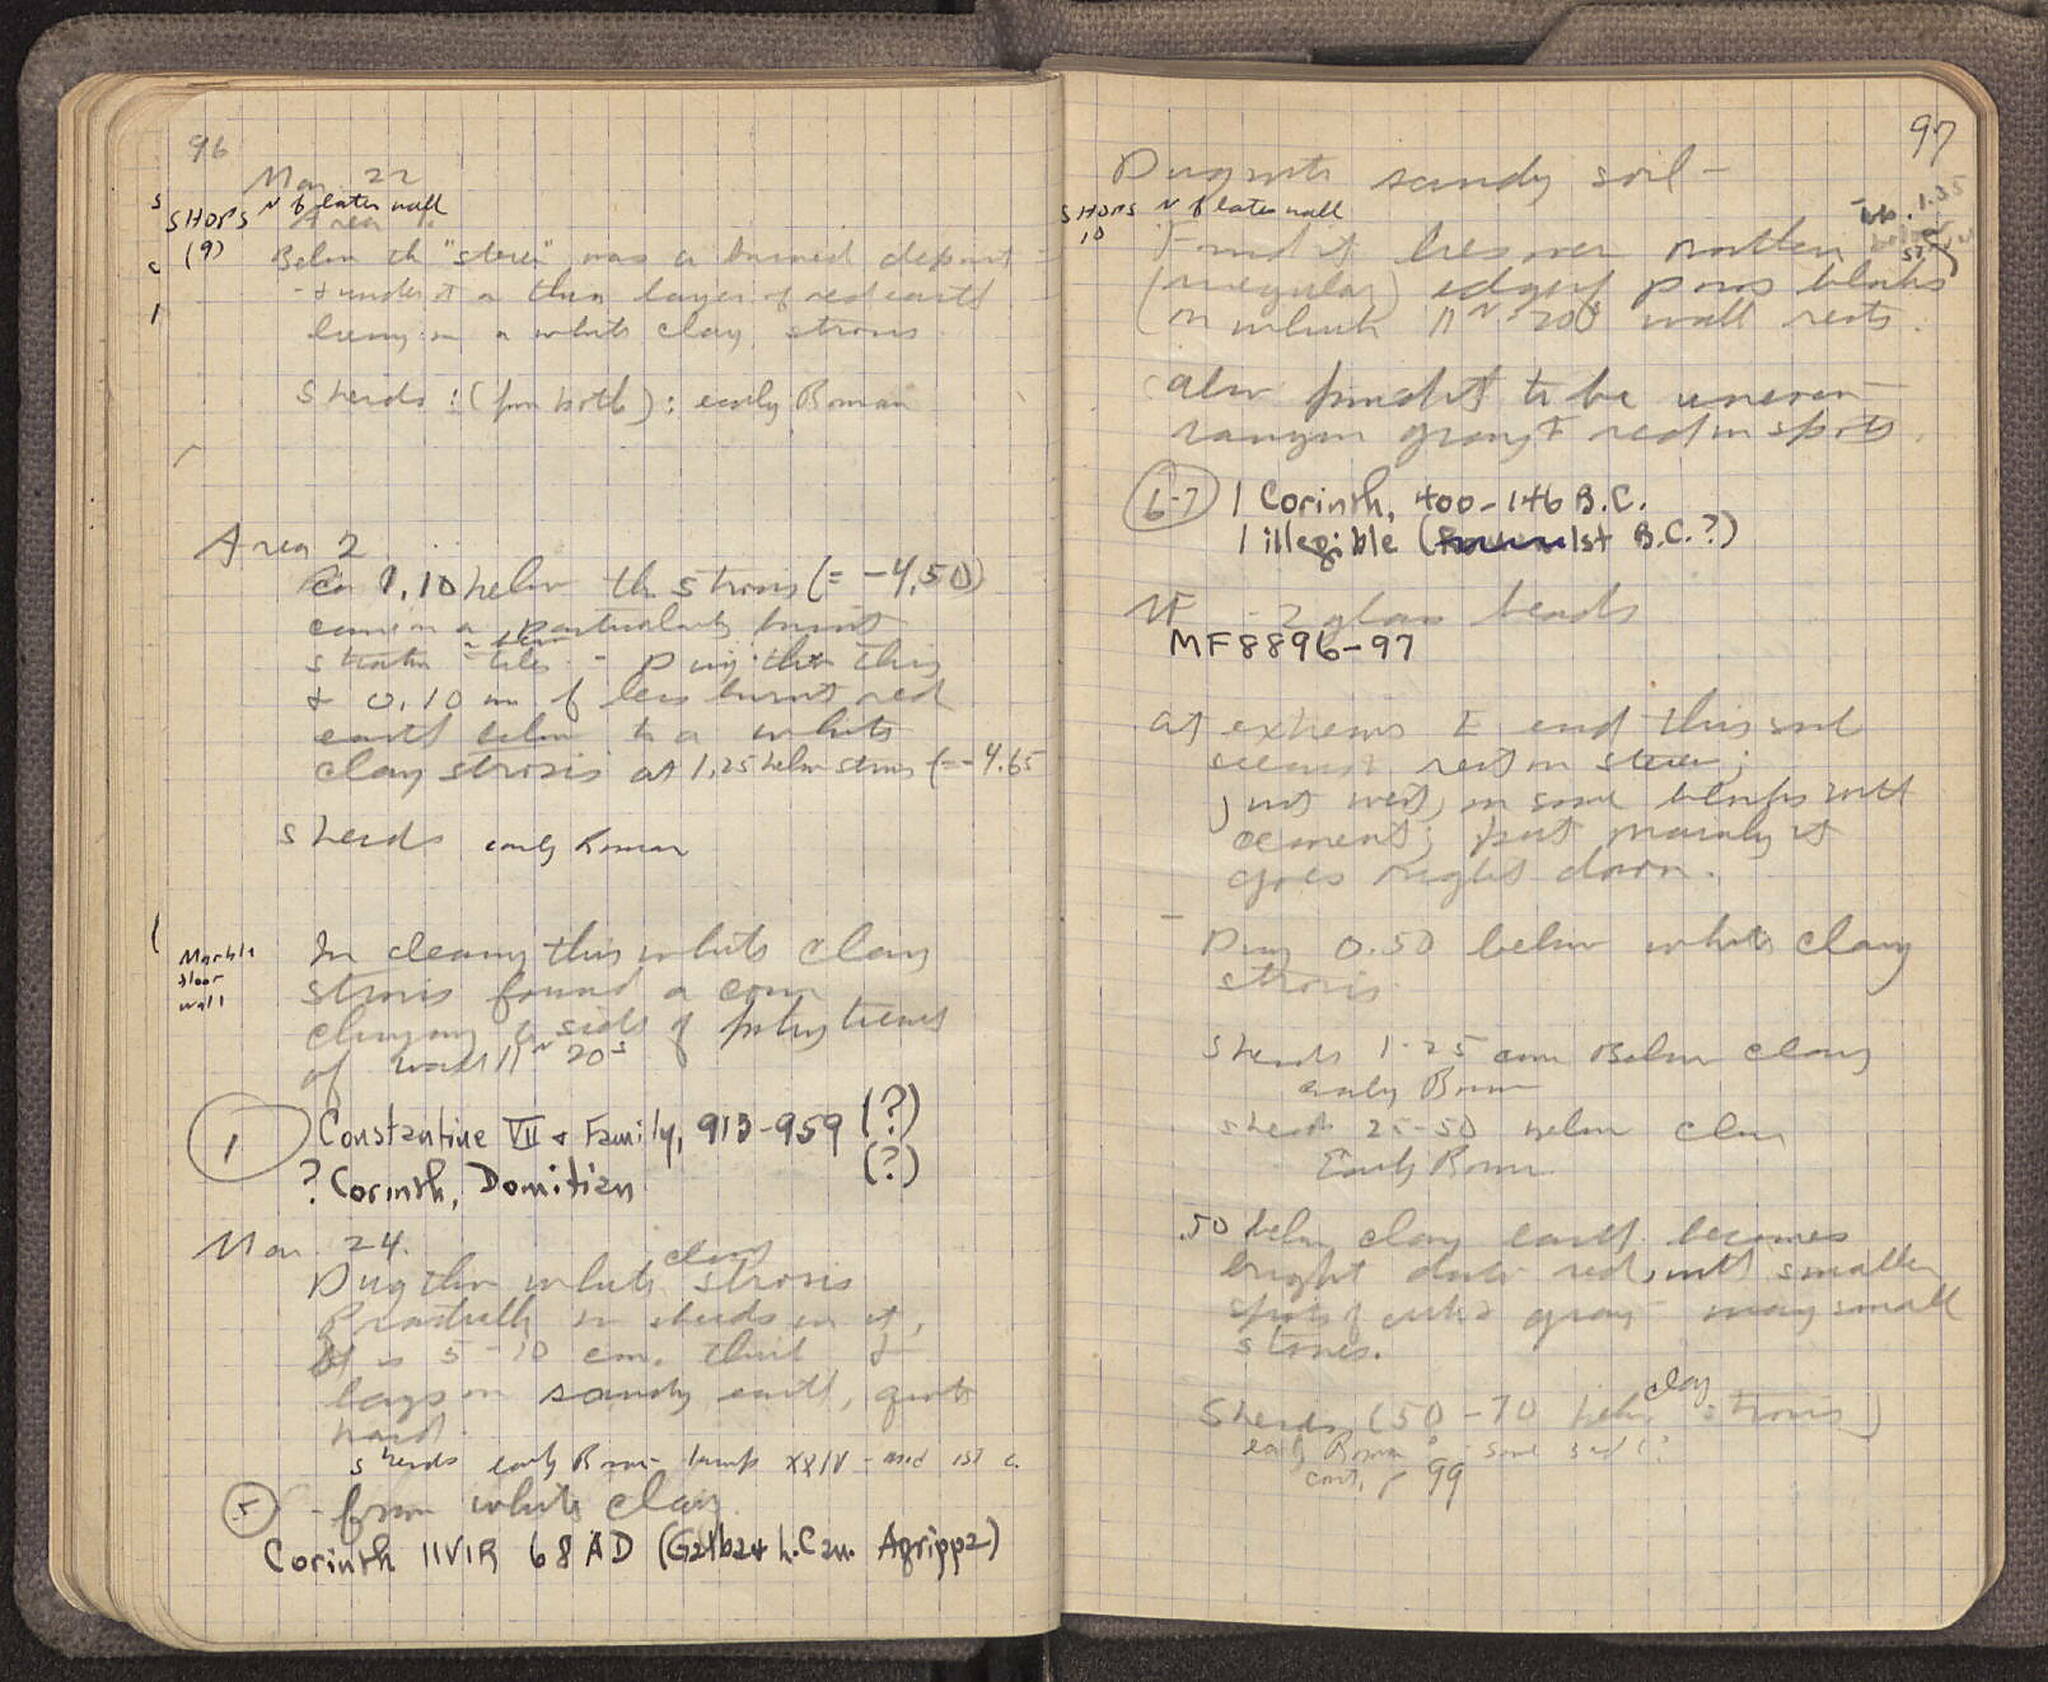 96
Mar. 22
SHOPS N of later wall
(9) Area 1.
Below the "stereo" was a burned deposit -
- & under it a thin layer of red earth
lieing on a white clay strosis
Sherds : (from both) : early Roman
Area 2
Ca 1.10 below the strosis (= -4.50)
came on a particularly burnt
stratum tiles - Dug thru this
& 0.10 m of less burnt red
earth below to a white
clay strosis at 1.25 below strosis (= -4.65
sherds early Roman
Marble
floor
wall
In cleaning this white clay
strosis found a coin
clinging to side of
of wall 11 N 20s
1 Constantine VII & Family, 913-959 (?)
? Corinth, Domitian (?)
Mar. 24.
Dug thru white clay strosis
Practically no sherds in it,
It is 5-10 cm. thick &
lays on sandy earth, quite
hard.
sherds early Roman lamp XXIV - mid 1st c.
5 - from white clay
Corinth IIVIR 68 AD (Galba & L. Can. Agrippa)
97
Dug into sandy soil -
SHOPS N of later wall
10
Found it lies over rotten
(irregular) edge of poros blocks
on which 11 N 20s wall rests.
also found it to be uneven
ranging gray & red in spots.
6-7 1 Corinth, 400-146 B.C.
1 illegible ( 1st B.C.?)
MF - 2 glass beads
MF 8896-97
at extreme E end this soil
seems to rest on stereo;
just west, on some blocks with
cement; but mainly it
goes right down.
- Dug 0.50 below white clay
strosis.
Sherds 1-25 cm Below clay
early Roman
sherds 25-50 below clay
Early Roman
.50 below clay earth becomes
bright dark red, with smaller
spots of gray - many small
stones.
Sherds (50-70 below clay strosis)
early Roman - some 3rd c?
cont. p 99